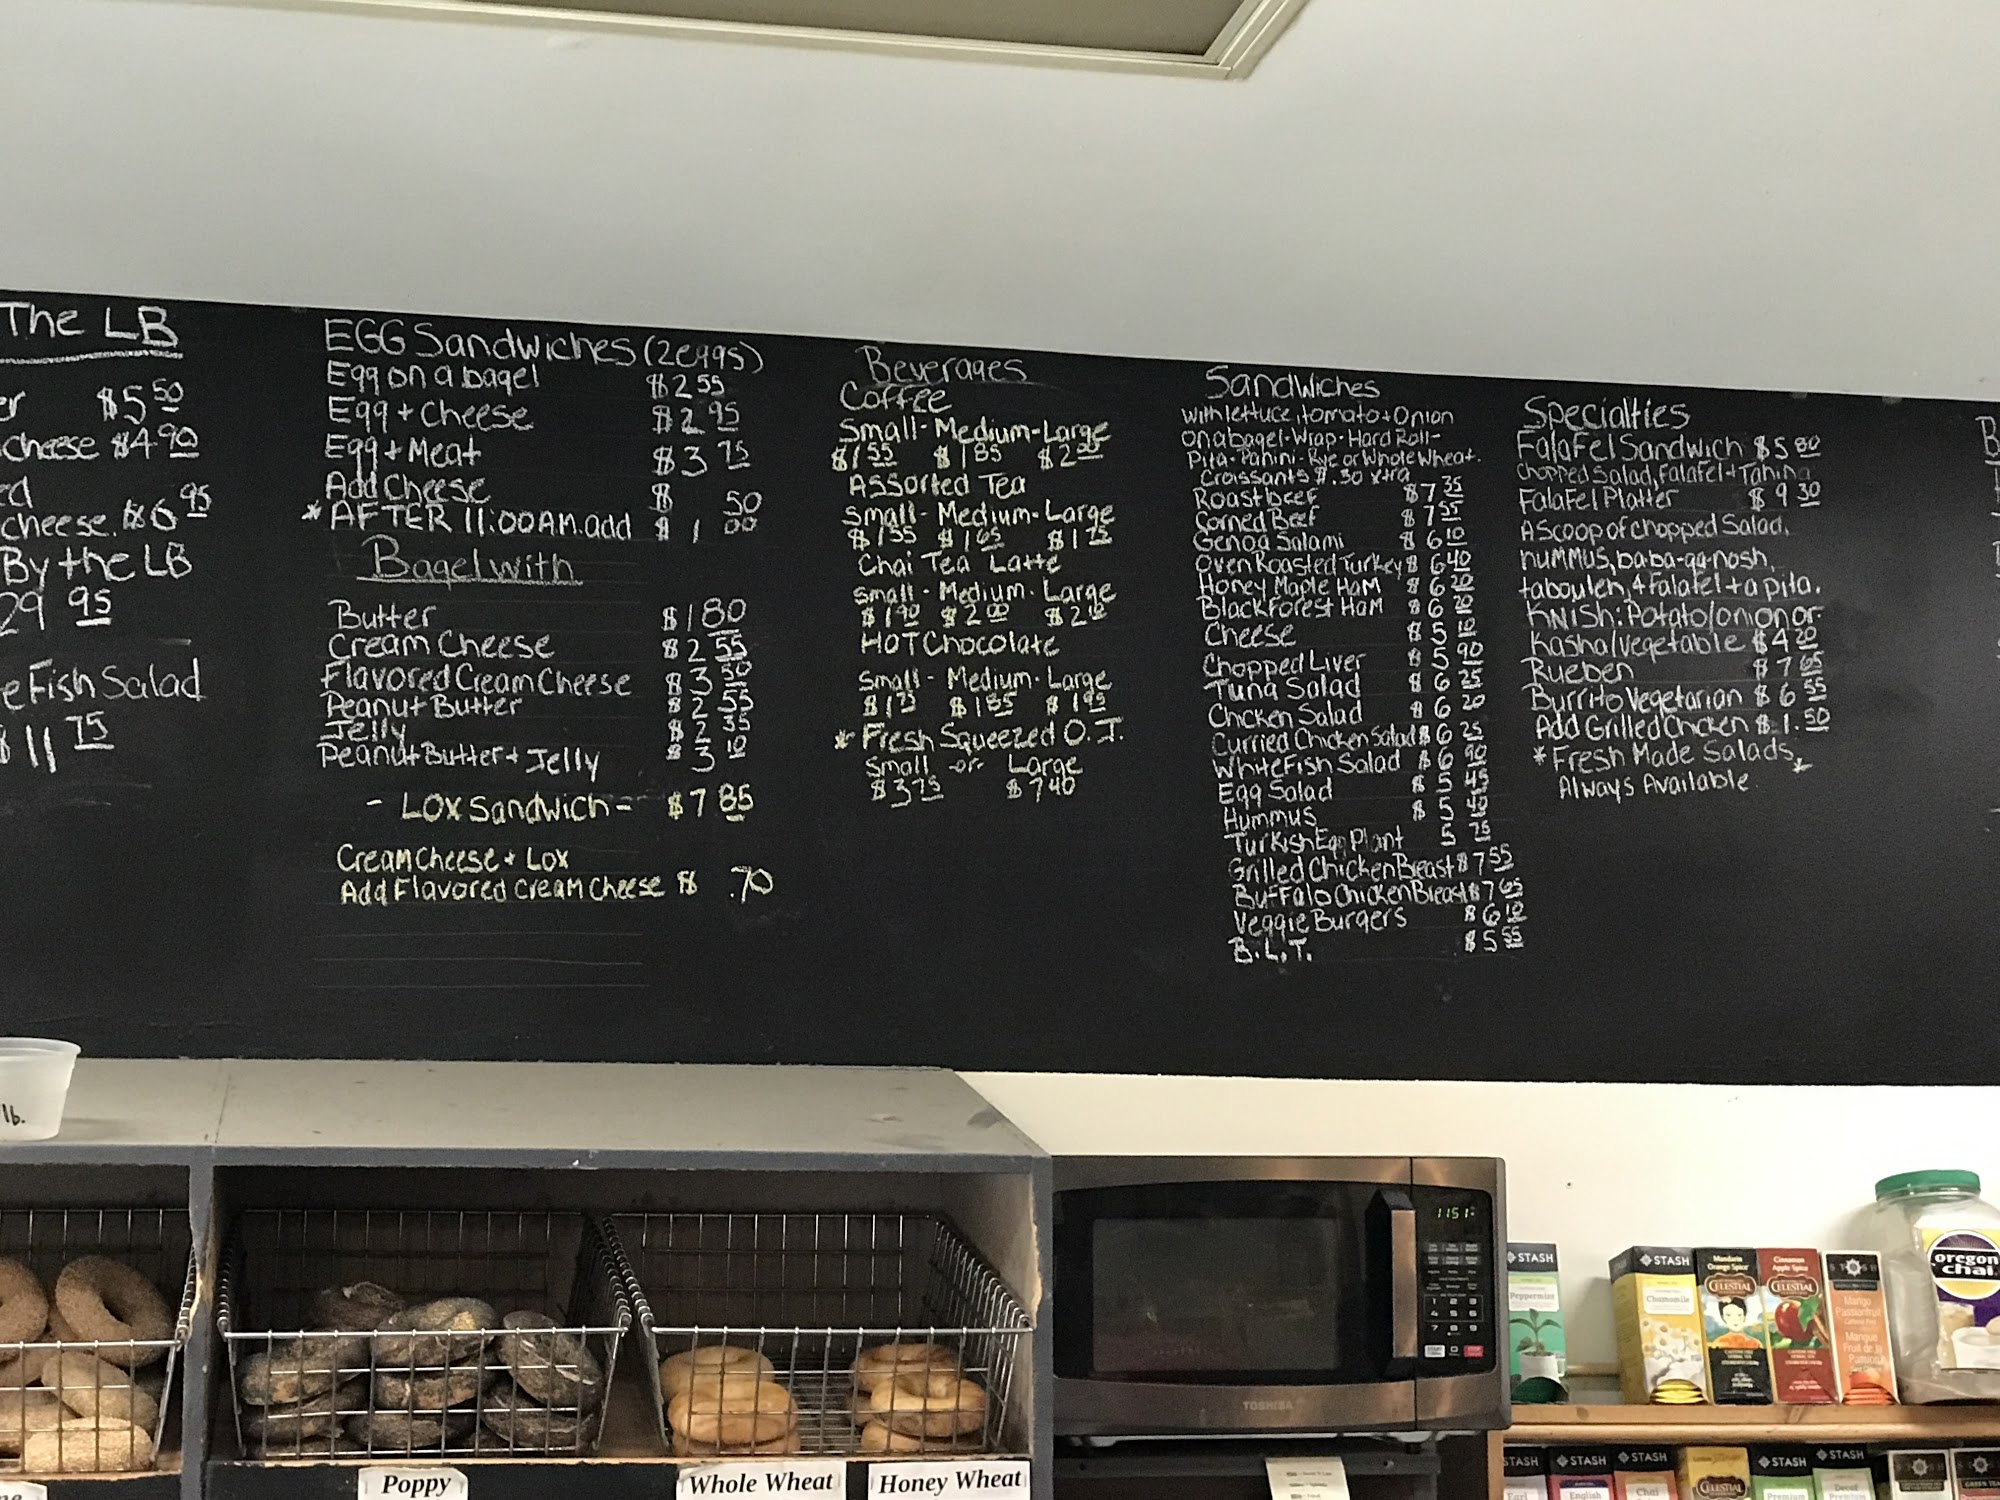 The LB
$5 50
cheese $4.90
cheese. $6 95
By the LB
29 95
Fish Salad
$11 75
EGG Sandwiches (2eggs)
Egg on a bagel $2 55
Egg + Cheese $2 95
Egg + Meat $3 75
Add Cheese $ 50
* AFTER 11:00 AM. add $1 00
Bagel with
Butter $1 80
Cream Cheese $2 55
Flavored Cream Cheese $3 50
Peanut Butter $2 55
Jelly $2 35
Peanut Butter + Jelly $3 10
- LOX Sandwich - $7 85
Cream Cheese + Lox
Add Flavored Cream Cheese $ .70
Beverages
Coffee
Small - Medium - Large
$1 55 $1 85 $2 00
Assorted Tea
Small - Medium - Large
$1 55 $1 65 $1 75
Chai Tea Latte
Small - Medium - Large
$1 90 $2 00 $2 10
HOT Chocolate
Small - Medium - Large
$1 75 $1 85 $1 95
* Fresh Squeezed O.J.
Small or Large
$3 75 $7 40
Sandwiches
with lettuce, tomato + Onion
on a bagel - Wrap - Hard Roll -
Pita - Panini - Rye or Whole Wheat.
Croissants $.50 xtra
Roast beef $7 35
Corned Beef $7 55
Genoa Salami $6 10
Oven Roasted Turkey $6 40
Honey Maple Ham $6 20
Black Forest Ham $6 20
Cheese $5 10
Chopped Liver $5 90
Tuna Salad $6 25
Chicken Salad $6 20
Curried Chicken Salad $6 25
White Fish Salad $6 90
Egg Salad $5 45
Hummus $5 40
Turkish Egg Plant 5 75
Grilled Chicken Breast $7 55
Buffalo Chicken Breast $7 65
Veggie Burgers $6 10
B.L.T. $5 55
Specialties
Falafel Sandwich $5 80
Chopped Salad, Falafel + Tahina
Falafel Platter $9 30
A Scoop of chopped Salad,
hummus, baba-ga-nosh,
tabouleh, 4 falafel + a pita.
Knish: Potato/onion or
Kasha/vegetable $4 20
Rueben $7 65
Burrito Vegetarian $6 55
Add Grilled Chicken $1.50
* Fresh Made Salads *
Always Available
lb.
Poppy
Whole Wheat
Honey Wheat
1151
TOSHIBA
STASH
Peppermint
STASH
Chamomile
Mandarin
Orange Spice
CELESTIAL
Cinnamon
Apple Spice
CELESTIAL
Mango
Passionfruit
Mangue
Fruit de la
Passion
oregon
chai
STASH
STASH
English
STASH
Chai
CELESTIAL
STASH
Premium
STASH
Decaf
Premium